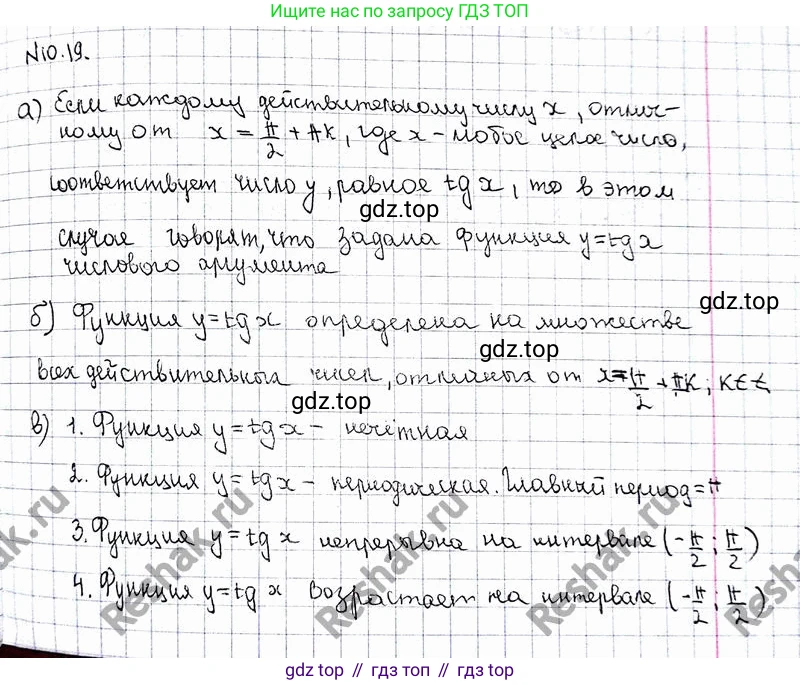 Ищите нас по запросу ГДЗ ТОП
N10.19.
а) Если каждому действительному числу x, отлич-
ному от x = π/2 + πк, где x - любое целое число,
соответствует число y, равное tg x, то в этом
gdz.top
случае говорят, что задана функция y=tg x
числового аргумента
gdz.top
б) Функция y=tg x определена на множестве
gdz.top
всех действительных чисел, отличных от x=π/2 + πк; к∈Z
gdz.top
в) 1. Функция y=tg x - нечётная
2. Функция y=tg x - периодическая. Главный период=π
3. Функция y=tg x непрерывна на интервале (-π/2; π/2)
4. Функция y=tg x возрастает на интервале (-π/2; π/2)
Reshak.ru
Reshak.ru
Reshak.ru
Reshak.ru
gdz top // гдз топ // gdz.top